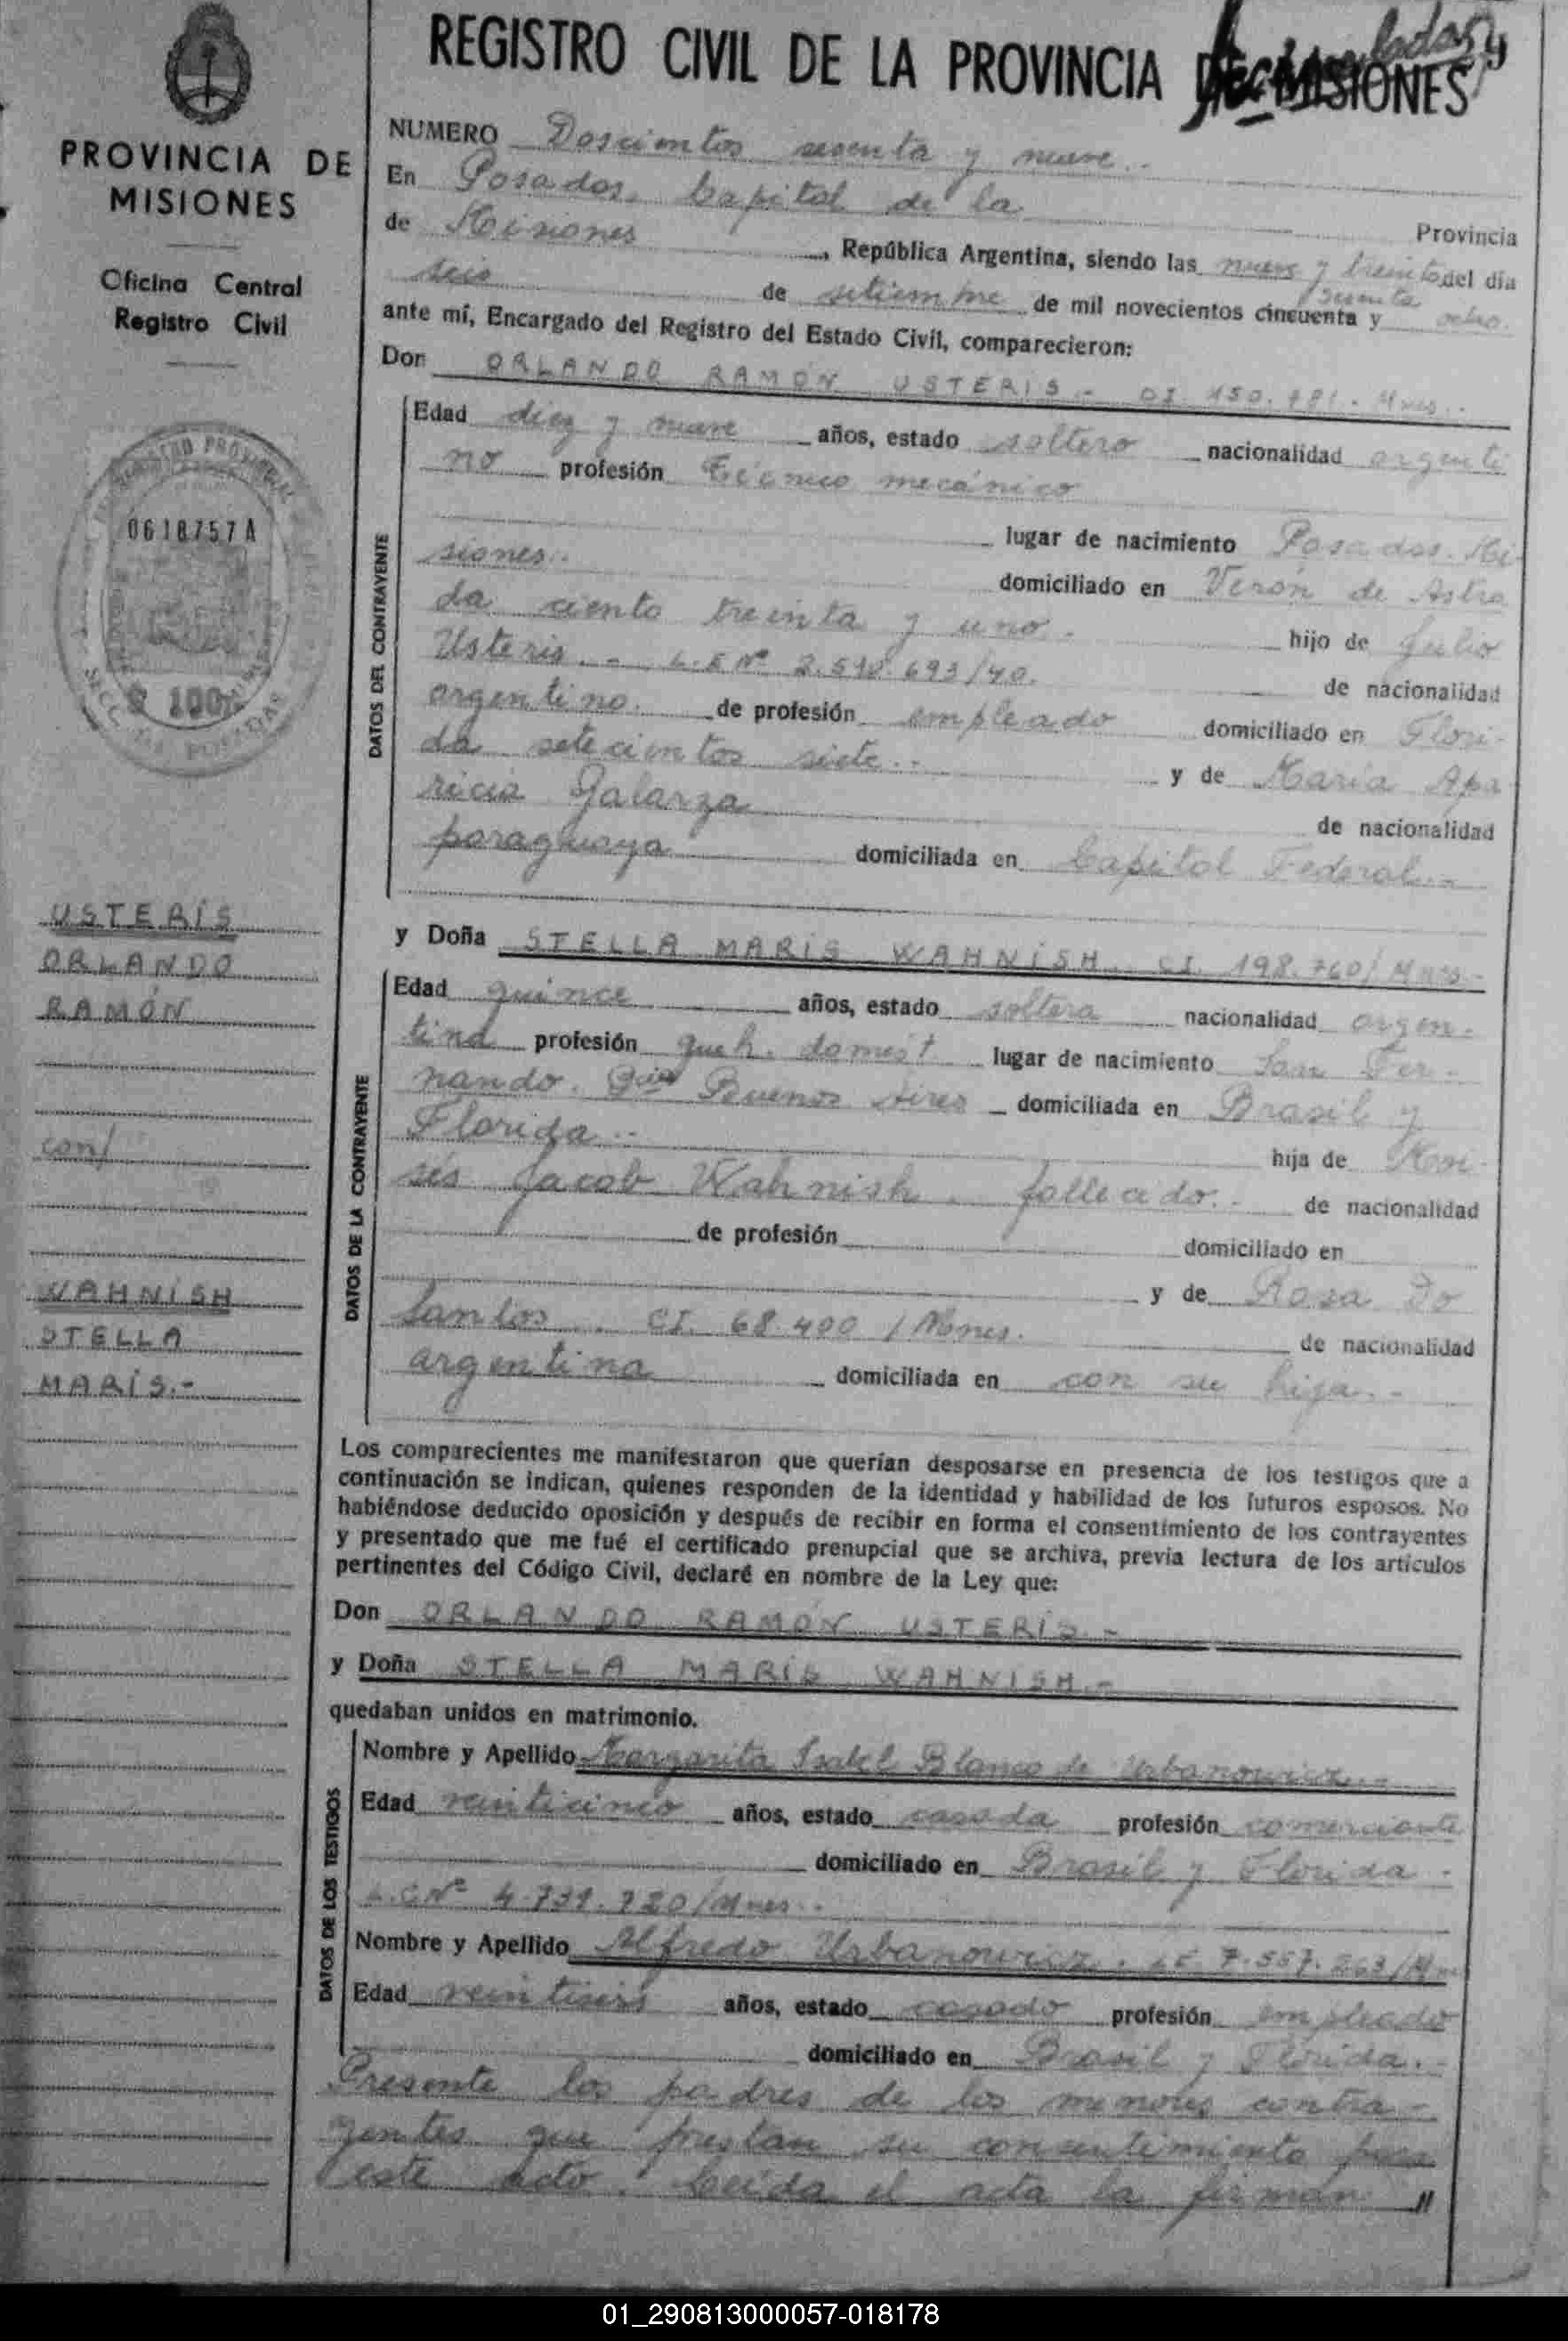 REGISTRO CIVIL DE LA PROVINCIA DE MISIONES
PROVINCIA DE
MISIONES
Oficina Central
Registro Civil
0618757A
$ 100
USTERIS
ORLANDO
RAMÓN
con/
WAHNISH
STELLA
MARIS.-
NUMERO Doscientos sesenta y nueve.-
En Posadas, Capital de la Provincia
de Misiones, República Argentina, siendo las nueve y treinta del día
seis de setiembre de mil novecientos cincuenta y sesenta ocho.
ante mí, Encargado del Registro del Estado Civil, comparecieron:
Don ORLANDO RAMÓN USTERIS.- CI. 150.781.- Mnes.-
DATOS DEL CONTRAYENTE
Edad diez y nueve años, estado soltero nacionalidad argenti
no profesión Técnico mecánico
lugar de nacimiento Posadas. Mi
siones.- domiciliado en Verón de Astra
da ciento treinta y uno.- hijo de Julio
Usteris.- L.E Nº 2.598.693/40. de nacionalidad
argentino. de profesión empleado domiciliado en Flori-
da setecientos siete.- y de María Apa
ricia Galarza de nacionalidad
paraguaya domiciliada en Capital Federal.-
y Doña STELLA MARIS WAHNISH. CI. 198.760/Mnes.-
DATOS DE LA CONTRAYENTE
Edad quince años, estado soltera nacionalidad argen-
tina profesión queh. domést lugar de nacimiento San Fer-
nando. Pcia Buenos Aires domiciliada en Brasil y
Florida.- hija de Moi-
sés Jacob Wahnish. fallecido.- de nacionalidad
de profesión domiciliado en
y de Rosa Do
Santos. CI. 68.400 / Mnes. de nacionalidad
argentina domiciliada en con su hija.-
Los comparecientes me manifestaron que querían desposarse en presencia de los testigos que a
continuación se indican, quienes responden de la identidad y habilidad de los futuros esposos. No
habiéndose deducido oposición y después de recibir en forma el consentimiento de los contrayentes
y presentado que me fué el certificado prenupcial que se archiva, previa lectura de los artículos
pertinentes del Código Civil, declaré en nombre de la Ley que:
Don ORLANDO RAMÓN USTERIS.-
y Doña STELLA MARIS WAHNISH.-
quedaban unidos en matrimonio.
DATOS DE LOS TESTIGOS
Nombre y Apellido Margarita Isabel Blanco de Urbanowicz.-
Edad veinticinco años, estado casada profesión comerciante
domiciliado en Brasil y Florida.-
L.C Nº 4.731.720/Mnes.-
Nombre y Apellido Alfredo Urbanowicz. LE. 7.557.263/Mnes
Edad veintiseis años, estado casado profesión empleado
domiciliado en Brasil y Florida.-
Presente los padres de los menores contra-
yentes que prestan su consentimiento para
este acto. Leída el acta la firman //
01_290813000057-018178